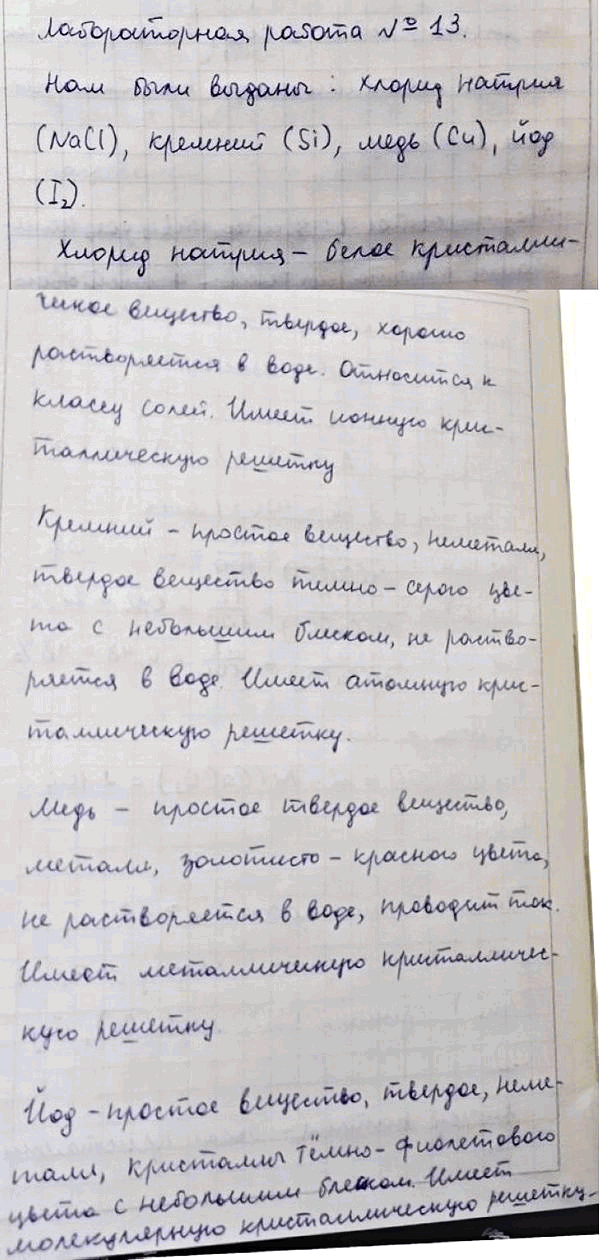 Лабораторная работа № 13.
Нам были выданы: хлорид натрия
(NaCl), кремний (Si), медь (Cu), йод
(I₂).
Хлорид натрия – белое кристалли-
ческое вещество, твердое, хорошо
растворяется в воде. Относится к
классу солей. Имеет ионную крис-
таллическую решетку
Кремний – простое вещество, неметалл,
твердое вещество темно-серого цве-
та с небольшим блеском, не раство-
ряется в воде. Имеет атомную крис-
таллическую решетку.
Медь – простое твердое вещество,
металл, золотисто-красного цвета,
не растворяется в воде, проводит ток.
Имеет металлическую кристалличес-
кую решетку.
Йод – простое вещество, твердое, неме-
талл, кристаллы тёмно-фиолетового
цвета с небольшим блеском. Имеет
молекулярную кристаллическую решетку.